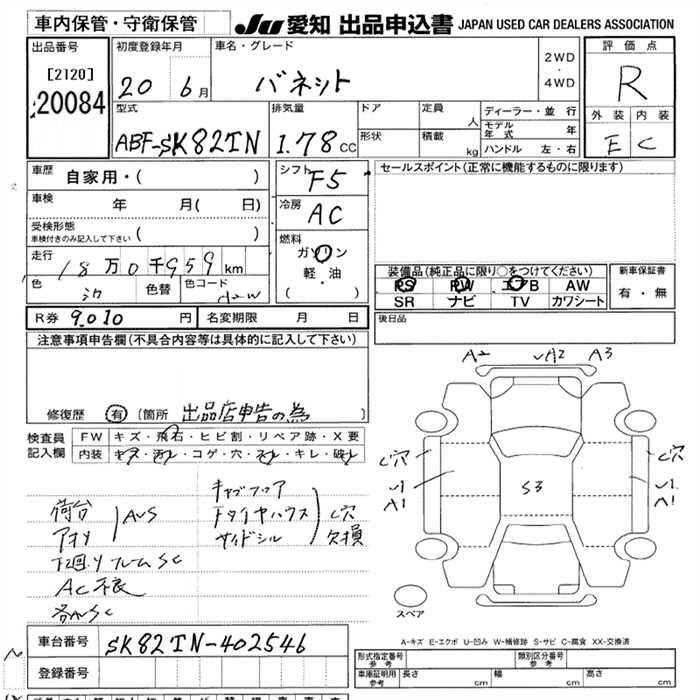 車内保管・守衛保管
JU 愛知 出品申込書 JAPAN USED CAR DEALERS ASSOCIATION
出品番号
[2120]
20084
初度登録年月
20 6月
車名・グレード
バネット
2WD
・
4WD
評価点
R
外装 内装
E C
型式
ABF-SK82TN
排気量
1.78cc
ドア
形状
定員
人
積載
kg
ディーラー・並行
モデル年式 年
ハンドル 左・右
車歴 自家用・( )
車検 年 月( 日)
受検形態
車検付きのみ記入して下さい ( )
走行 18万0千959km
色 色替 色コード
シフト F5
冷房 AC
燃料
ガソリン
軽・油
( ・ )
セールスポイント(正常に機能するものに限ります)
装備品(純正品に限り○をつけてください)
PS PW エアB AW
SR ナビ TV カワシート
新車保証書
有・無
R券 9010円
名変期限 月 日
後日品
注意事項申告欄(不具合内容等は具体的に記入して下さい)
修復歴 有 [箇所 出品店申告の為
検査員
記入欄
FW キズ・飛石・ヒビ割・リペア跡・X要
内装 キズ・汚レ・コゲ・穴・スレ・キレ・破レ
荷台
アオリ
AUS
下回りフレームSC
AC不良
各AUSC
キャブフロア
トタイヤハウス
サイドシル
C穴
欠損
A2 A2 A3
C穴 C穴
U1 U1
A1 A1
S3
スペア
A-キズ E-エクボ U-凹み W-補修跡 S-サビ C-腐食 XX-交換済
車台番号 SK82TN-402546
登録番号
形式指定番号
参考
類別区分番号
参考
車庫証明用
参考
長さ cm 幅 cm 高さ cm